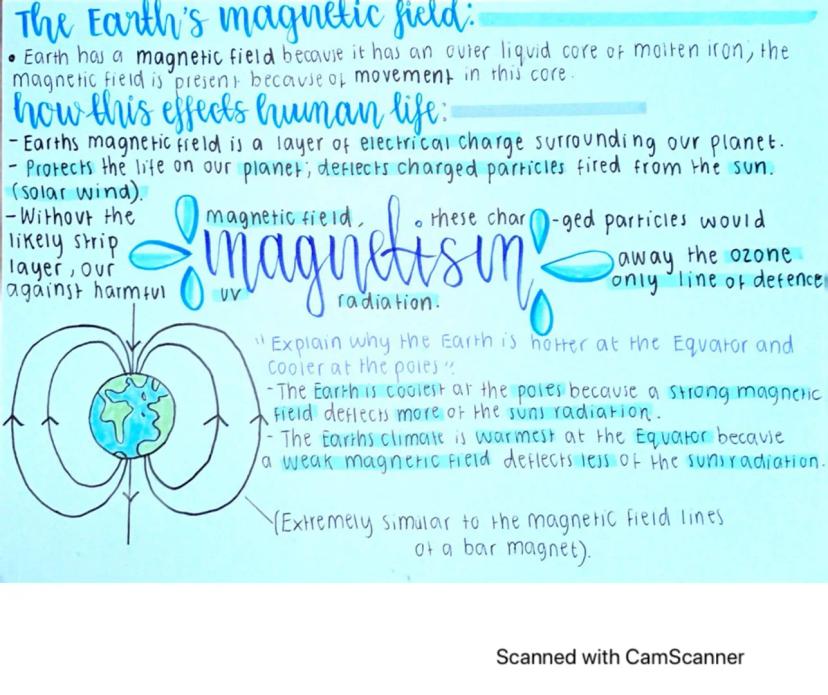 The Earth's magnetic field:
• Earth has a magnetic field because it has an outer liquid core of molten iron, the
magnetic field is present because of movement in this core.
how this effects human life:
- Earths magnetic field is a layer of electrical charge surrounding our planet.
- Protects the life on our planet; deflects charged particles fired from the sun.
(solar wind).
- Without the magnetic field, these char -ged particles would
likely strip magnetism away the ozone
layer, our only line of defence
against harmful uv radiation.
"Explain why the Earth is hotter at the Equator and
cooler at the poles".
- The Earth is coolest at the poles because a strong magnetic
field deflects more of the suns radiation.
- The Earths climate is warmest at the Equator because
a weak magnetic field deflects less of the suns radiation.
(Extremely simular to the magnetic field lines
of a bar magnet).
Scanned with CamScanner